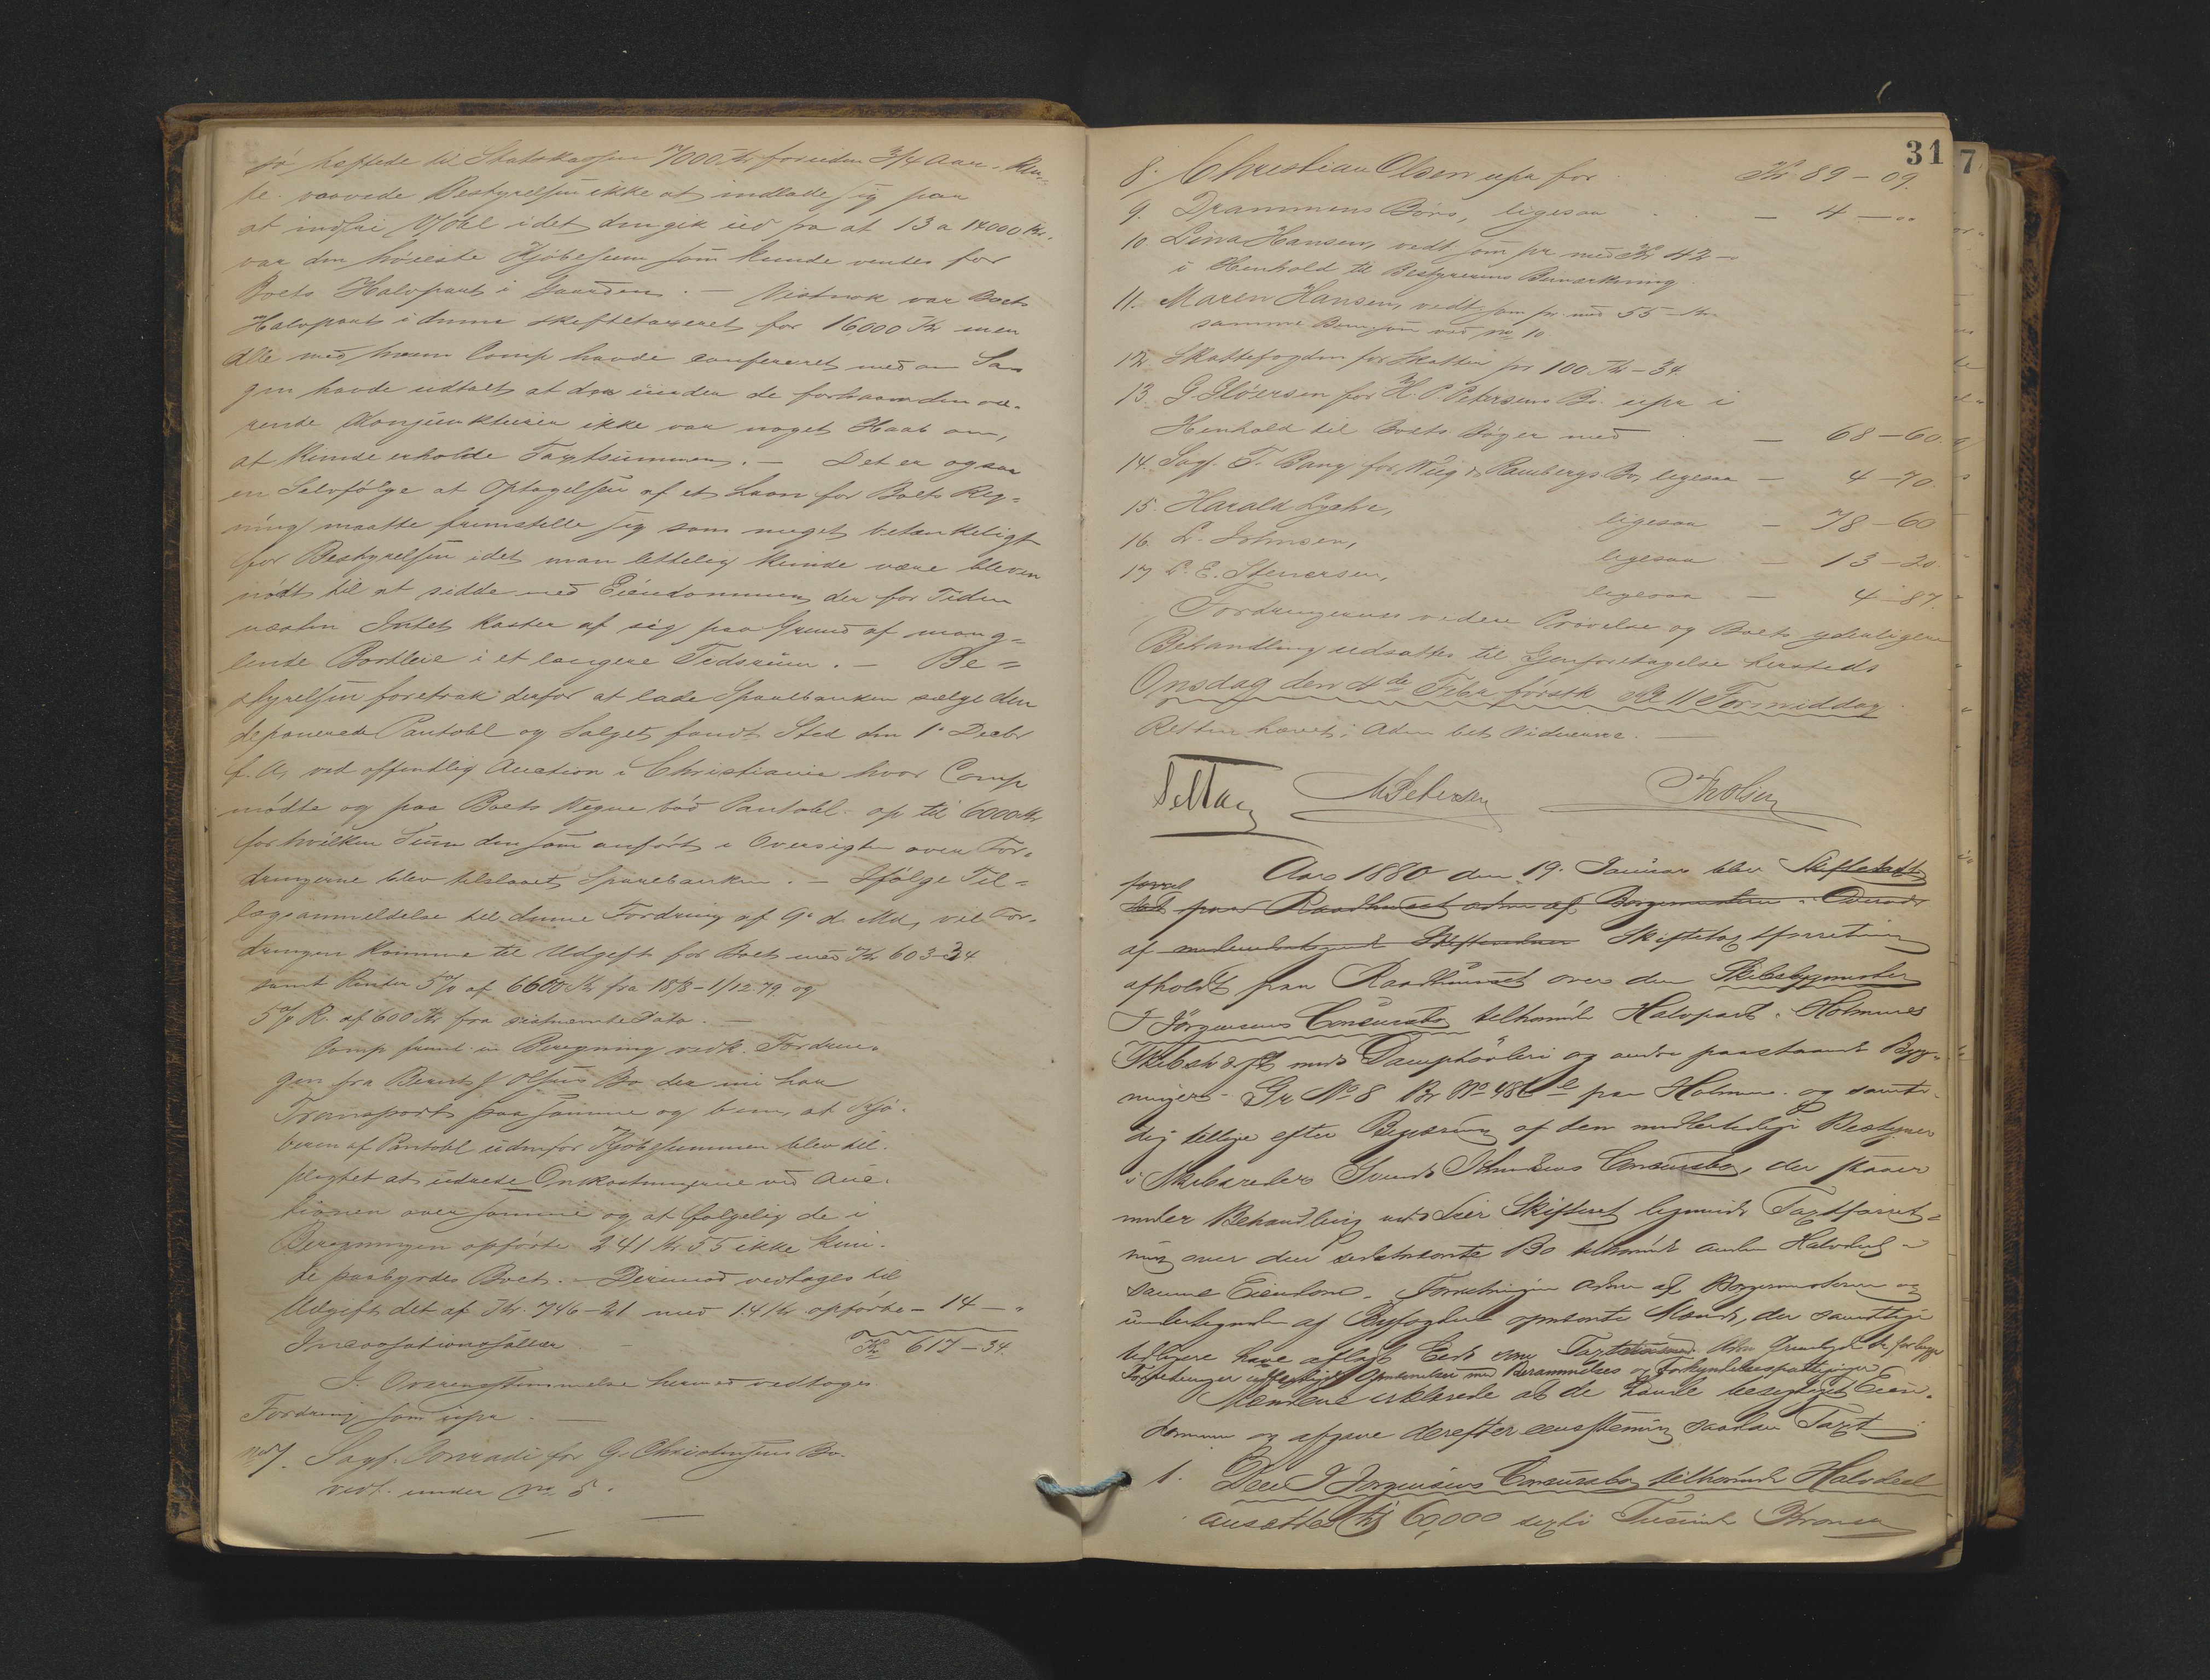 heftede til Statskassen 7000 Kr foruden 3/4 Aars Ren-
te. vovede Bestyrelsen ikke at indlade sig paa
at indfri Obl idet den gik ud fra at 13 a 14000 Kr.
var den höieste Kjöbesum som kunde ventes for
Boets Halvpart i Gaarden. — Vistnok var Boets
Halvpart i denne skiftetaxeret for 16000 Kr men
Alle med hvem Comp havde confereret med om Sa
gen havde udtalt at der under de forhaanden væ-
rende Konjunkturer ikke var noget Haab om,
at kunde erholde Taxtsummen. — Det er ogsaa
en Selvfölge at Optagelsen af et Laan for Boets Reg-
ning maatte fremstille sig som meget betænkeligt
for Bestyrelsen idet man lettelig kunde være bleven
nödt til at sidde med Eiendommen der for Tiden
næsten Intet kaster af sig paa Grund af mang-
lende Bortleie i et længere Tidsrum. — Be-
styrelsen foretrak derfor at lade Sparebanken sælge den
deponerede Pantobl og Salget fandt Sted den 1' Decbr
f. A. ved offentlig Auction i Christiania hvor Comp
mödte og paa Boets Vegne böd Pantobl. op til 6000 Kr
for hvilken Sum den som anfört i Oversigten over For-
dringerne blev tilslaaet Sparebanken. — Ifölge Til-
lægsanmeldelse til denne Fordring af 9' d. Md, vil For-
dringen komme til Udgift for Boet med Kr 603-34
samt Renter 5% af 6600 Kr fra 18/8 - 1/12 79 og
5% R. af 600 Kr fra sidstnævnte Dato. —
Comp freml. en Beregning vedk. Fordrin-
gen fra Bernt J Olsens Bo der nu har
Transport paa samme og bem. at Kjö-
beren af Pantobl udenfor Kjöbesummen blev til-
pligtet at udrede Omkostningerne ved Auc-
tionen over samme og at fölgelig de i
Beregningen opförte 241 Kr 55 ikke kun-
de paabyrdes Boet. — Derimod vedtages til
Udgift det af Kr. 746-21 med 14 Kr opförte - 14 - "
Incassationssalær — Kr 617-34.
I Overensstemmelse hermed vedtoges
Fordring som upr. —
No 7. Sagf. Conradi for G. Christensens Bo.
vedt. under No 5.
31
7
8. Christian Olsen upr for Kr 89-09.
9. Drammens Börs, ligesaa — 4 - "
10 Lina Hansen, vedt som pr med Kr 42 -
i Henhold til Bestyrerens Bemærkning.
11. Maren Hansen, vedt som pr. med 55 - Kr.
samme Bem som ved No 10.
12. Skattefogden for Skatter pr 100 Kr - 34.
13. G. Glöersen for H. P. Petersens Bo. upr i
Henhold til Boets Böger med — 68-60.
14. Sagf. T. Bang for Wiig & Rambergs Bo, ligesaa — 4-70.
15. Harald Lyche, ligesaa — 78-60
16. L. Johnsen, ligesaa — 13-20
17 L. E. Stenersen, ligesaa — 4-87.
Fordringernes videre Prövelse og Boets yderligere
Behandling udsattes til Gjenforetagelse hersteds
Onsdag den 4de Febr förstk Kl 11 Formiddag.
Retten hævet. Aden bet. Vidnerne. —
M Petersen Th Olsen
Aar 1880 den 19. Januar blev Skiftetaxt
paa Raadhuset adm af Borgermesteren i Overvær
af Skiftetaxtforretning
afholdt paa Raadhuuset over den Skibsbygmester
J Jörgensens Concursbo tilhörende Halvpart i Holmens
Skibsværft med Damphövleri og andre paastaaende Byg-
ninger Gr No 8 Br No 486 paa Holmen. og samti-
dig tillige efter Begjæring af den midlertidige Bestyrer
i Skibsreder Svend Concursbo, der staaer
under Behandling ved Lier Skifteret lignende Taxtforret-
ning over den sidstnævnte Bo tilhörende anden Halvdel i
samme Eiendom. Forretningen adm af Borgermesteren og
undertegnede af Byfogden opnævnte Mænd, der samtlige
tidligere have aflagt Eed som Taxtmænd.
Opnævnelser med Berammelses og Forkyndelsespaategninger
Mændene erklærede at de havde besigtiget Eien-
dommen og afgave derefter eenstemmig saadan Taxt
1. Den J Jörgensens Concursbo tilhörende Halvdeel
ansattes til 60,000 sexti Tusinde Kroner